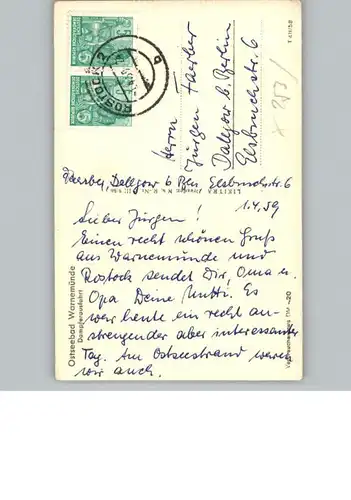 ROSTOCK 2
Herrn
Jürgen
Dallgow b. Berlin
Elsbruchstr. 6
T 411/58
Dallgow b Bln Elsbruchstr. 6
1.4.59
Lieber Jürgen!
Einen recht schönen Gruß
aus Warnemünde und
Rostock sendet Dir, Oma u.
Opa Deine Mutti. Es
war heute ein recht an-
strengender aber interessanter
Tag. Am Ostseestrand waren
wir auch.
Ostseebad Warnemünde
Dampferausfahrt
DM -20